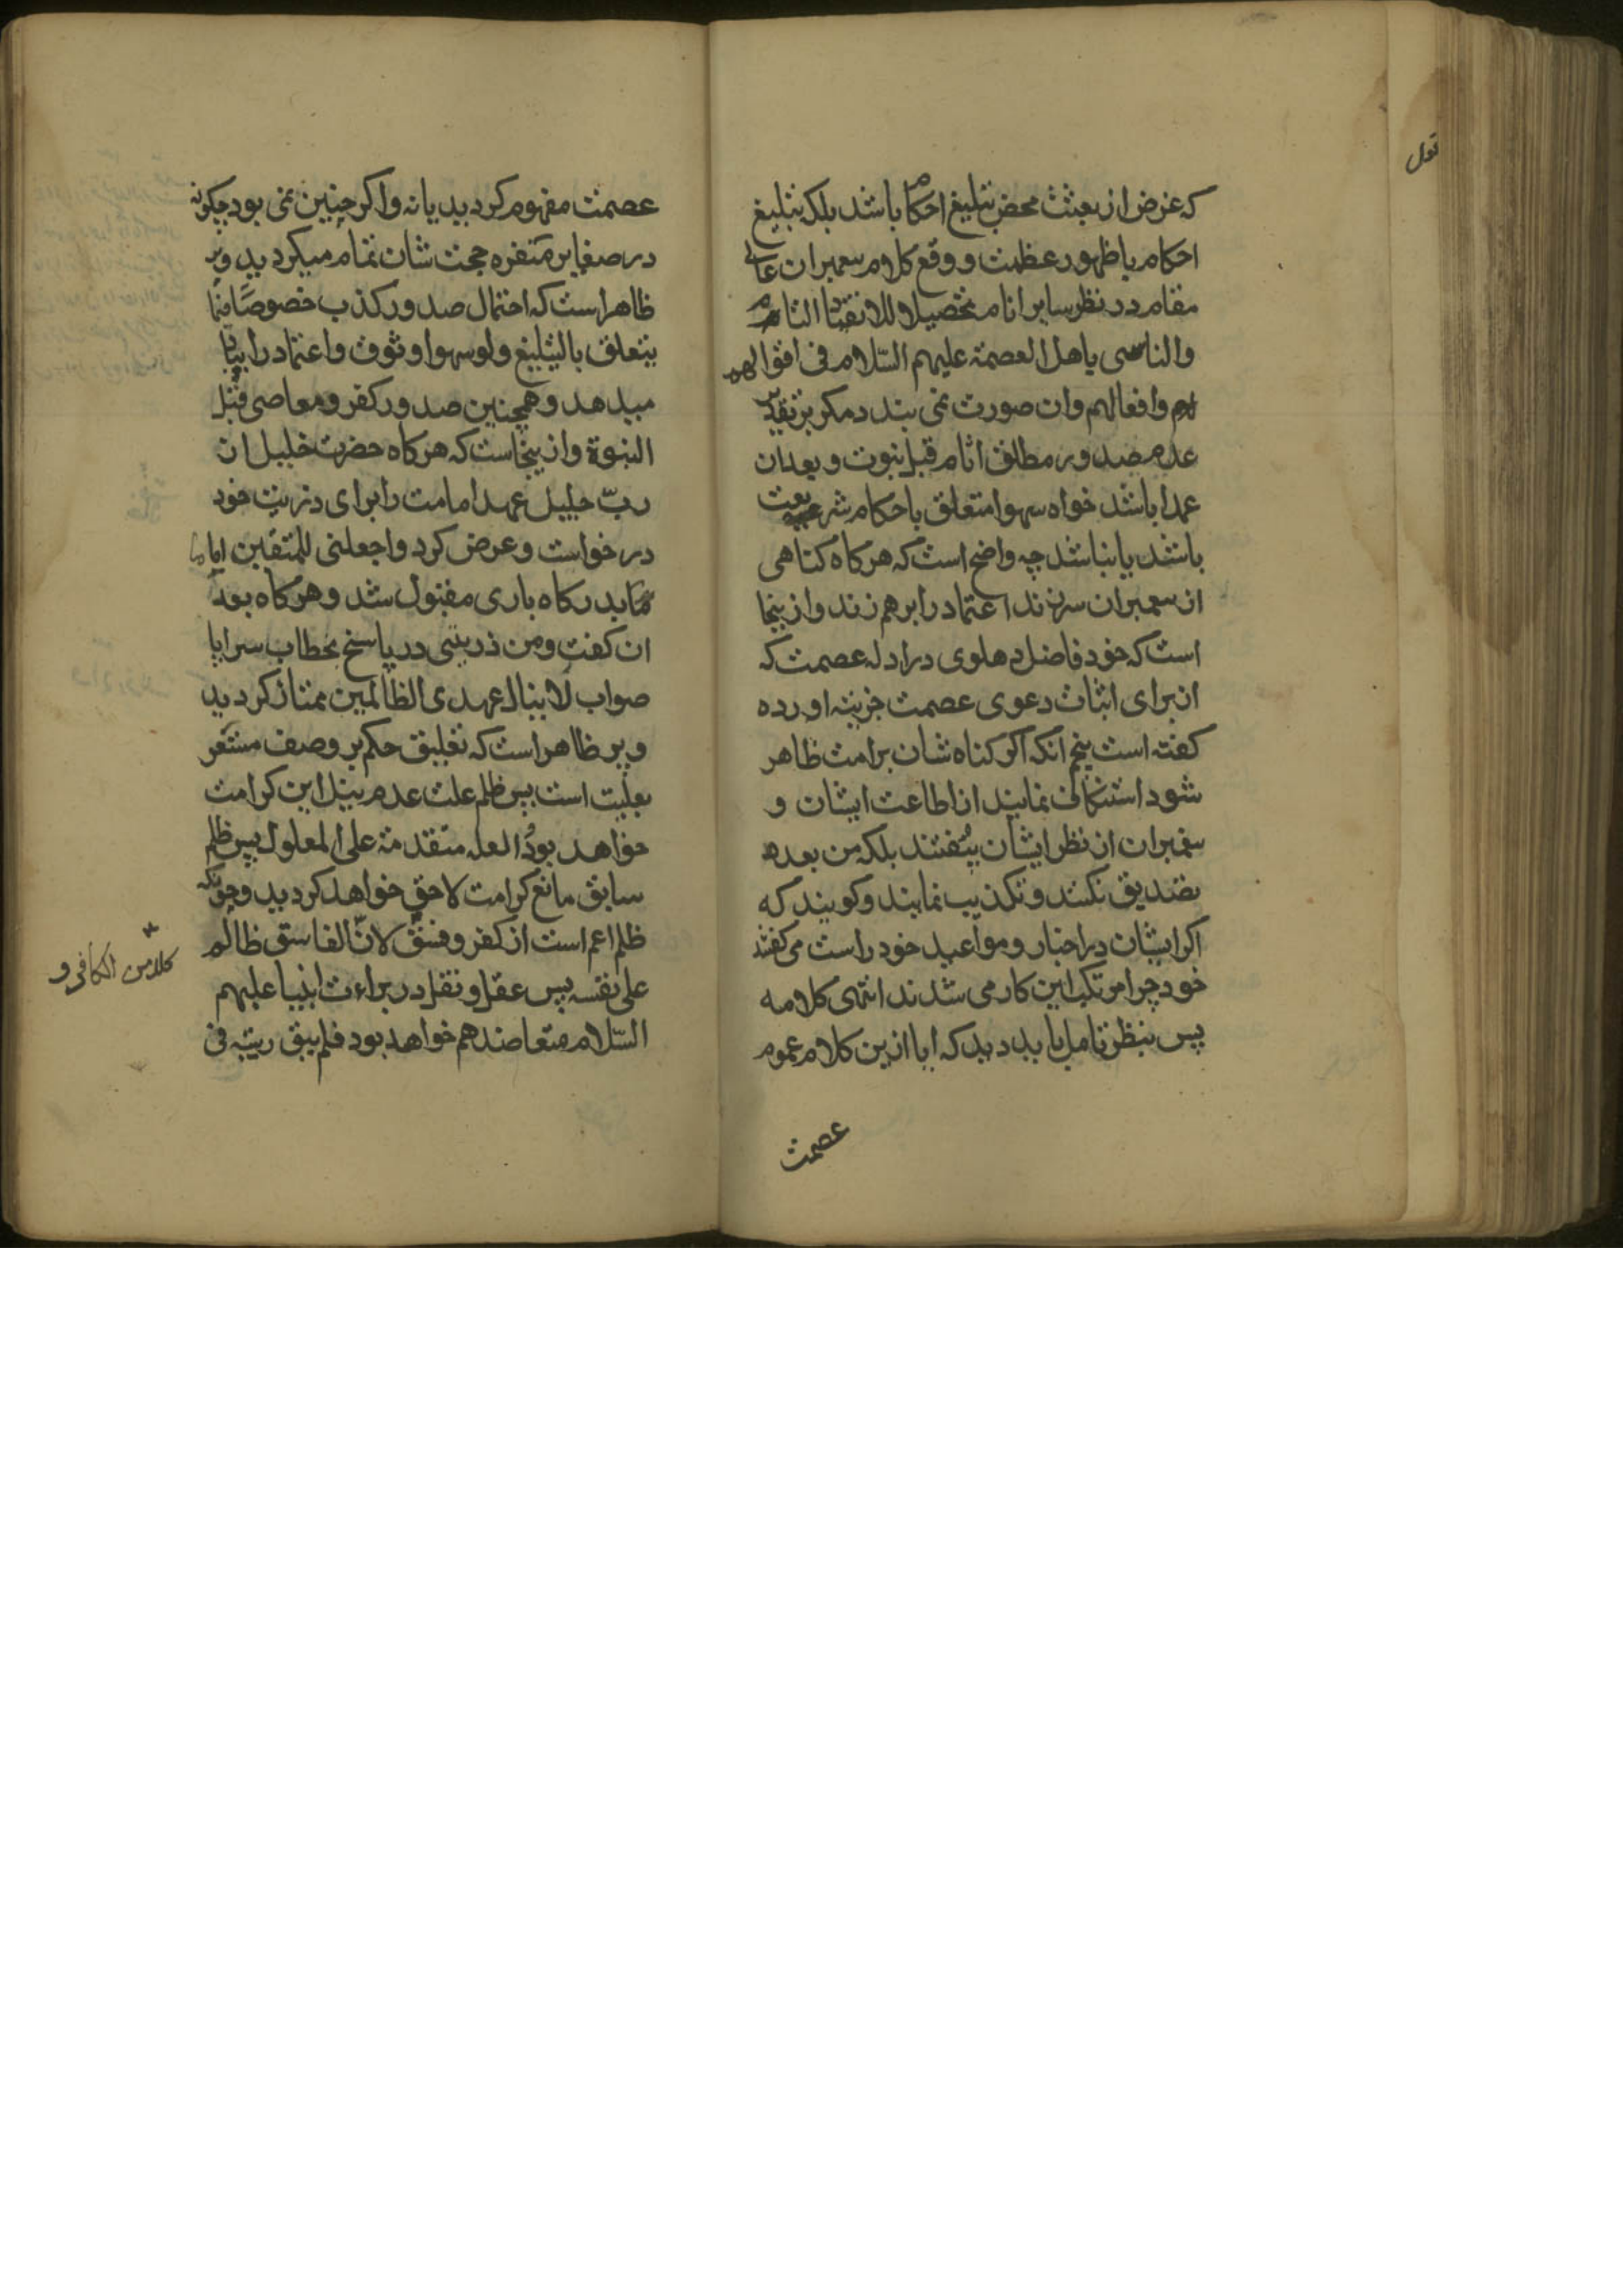 که غرض از بعثت محض تبلیغ احکام باشد بلکه تبلیغ
احکام با ظهور عظمت و وقع کلام پیغمبران عالی
مقام در نظر سایر انام تحصیلا للانقیاد التام
والتاسی باهل العصمة علیهم السّلام فی اقوالهم
وافعالهم وان صورت نمی بندد مکر بر تقدیر
عدم صدور مطلق اثام قبل نبوت و بعدان
عمدا باشد خواه سهوا متعلق باحکام شریعت
باشد یا نباشد چه واضح است که هرکاه کناهی
از پیغمبران سرزند اعتماد را برهم زند و ازینجا
است که خود فاضل دهلوی در ادله عصمت که
از برای اثبات دعوی عصمت جزیته اورده
کفته است پنجم انکه اکر کناه شان بر امت ظاهر
شود استنکاف نمایند از اطاعت ایشان و
پیغمبران از نظر ایشان بیُفتند بلکه من بعده
تصدیق نکنند و تکذیب نمایند و کویند که
اکر ایشان در اخبار و مواعید خود راست می کفتند
خود چرا مرتکب این کار می شدند انتهی کلامه
پس بنظر تامل باید دید که ایا ازین کلام عموم
عصمت
عصمت مفهوم کردید یا نه و اکر چنین نمی بود چکونه
در صغایر منفره حجت شان تمام میکردید و پر
ظاهر است که احتمال صدور کذب خصوصًا فیما
یتعلق بالتبلیغ ولو سهوا وثوق و اعتماد را بباد
میدهد و همچنین صدور کفر و معاصی قبل
النبوة و از ینجاست که هرکاه حضرت خلیل از
ربّ جلیل عهد امامت را برای ذریت خود
درخواست و عرض کرد واجعلنی للمتقین اماما
بدرکاه باری مقبول شد و هرکاه بعد
ان کفت ومن ذریتی در پاسخ بخطاب سراپا
صواب لا ینال عهدی الظالمین ممتاز کردید
و پر ظاهر است که تعلیق حکم بر وصف مشعر
بعلیت است پس ظلم علت عدم نیل این کرامت
خواهد بود و العله متقدمة علی المعلول پس ظلم
سابق مانع کرامت لاحق خواهد کردید و چونکه
ظلم اعم است از کفر و فسق لانّ الفاسق ظالم
علی نفسه پس عقل و نقل در براءت انبیا علیهم
السّلام متعاضد هم خواهد بود فلم یبق ریبة فی
کلا من الکافر و